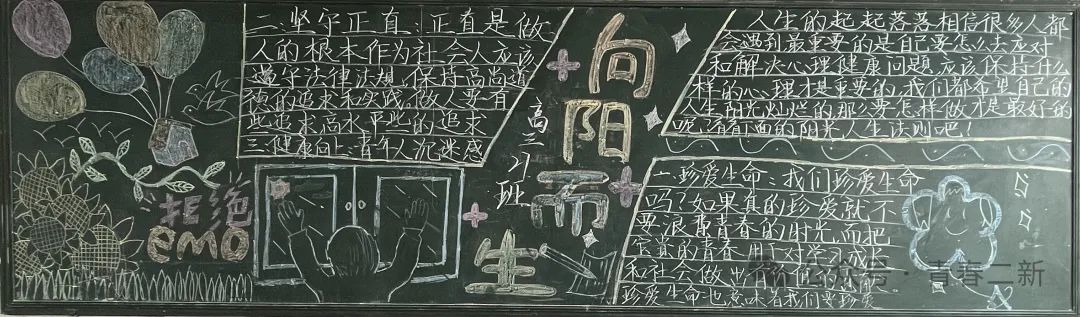 二.坚守正直:正直是做
人的根本作为社会人应该
遵守法律法规,保持高尚道
德的追求和实践,做人要有
些追求高水平些的追求
三.健康向上:青年人沉迷感
拒绝
emo
向阳而生
高三21班
人生的起起落落相信很多人都
会遇到最重要的是自己要怎么去应对
和解决心理健康问题,应该保持什么
样的心理才是重要的,我们都希望自己的
人生阳光灿烂的那么要怎样做才是最好的
呢,看看下面的阳光人生法则吧!
一.珍爱生命:我们珍爱生命
吗?如果真的珍爱就不
要浪费青春的时光,而把
宝贵的青春用于对学习成长
和社会做出有价值的
珍爱生命也意味着我们要珍爱
公众号·青春二新